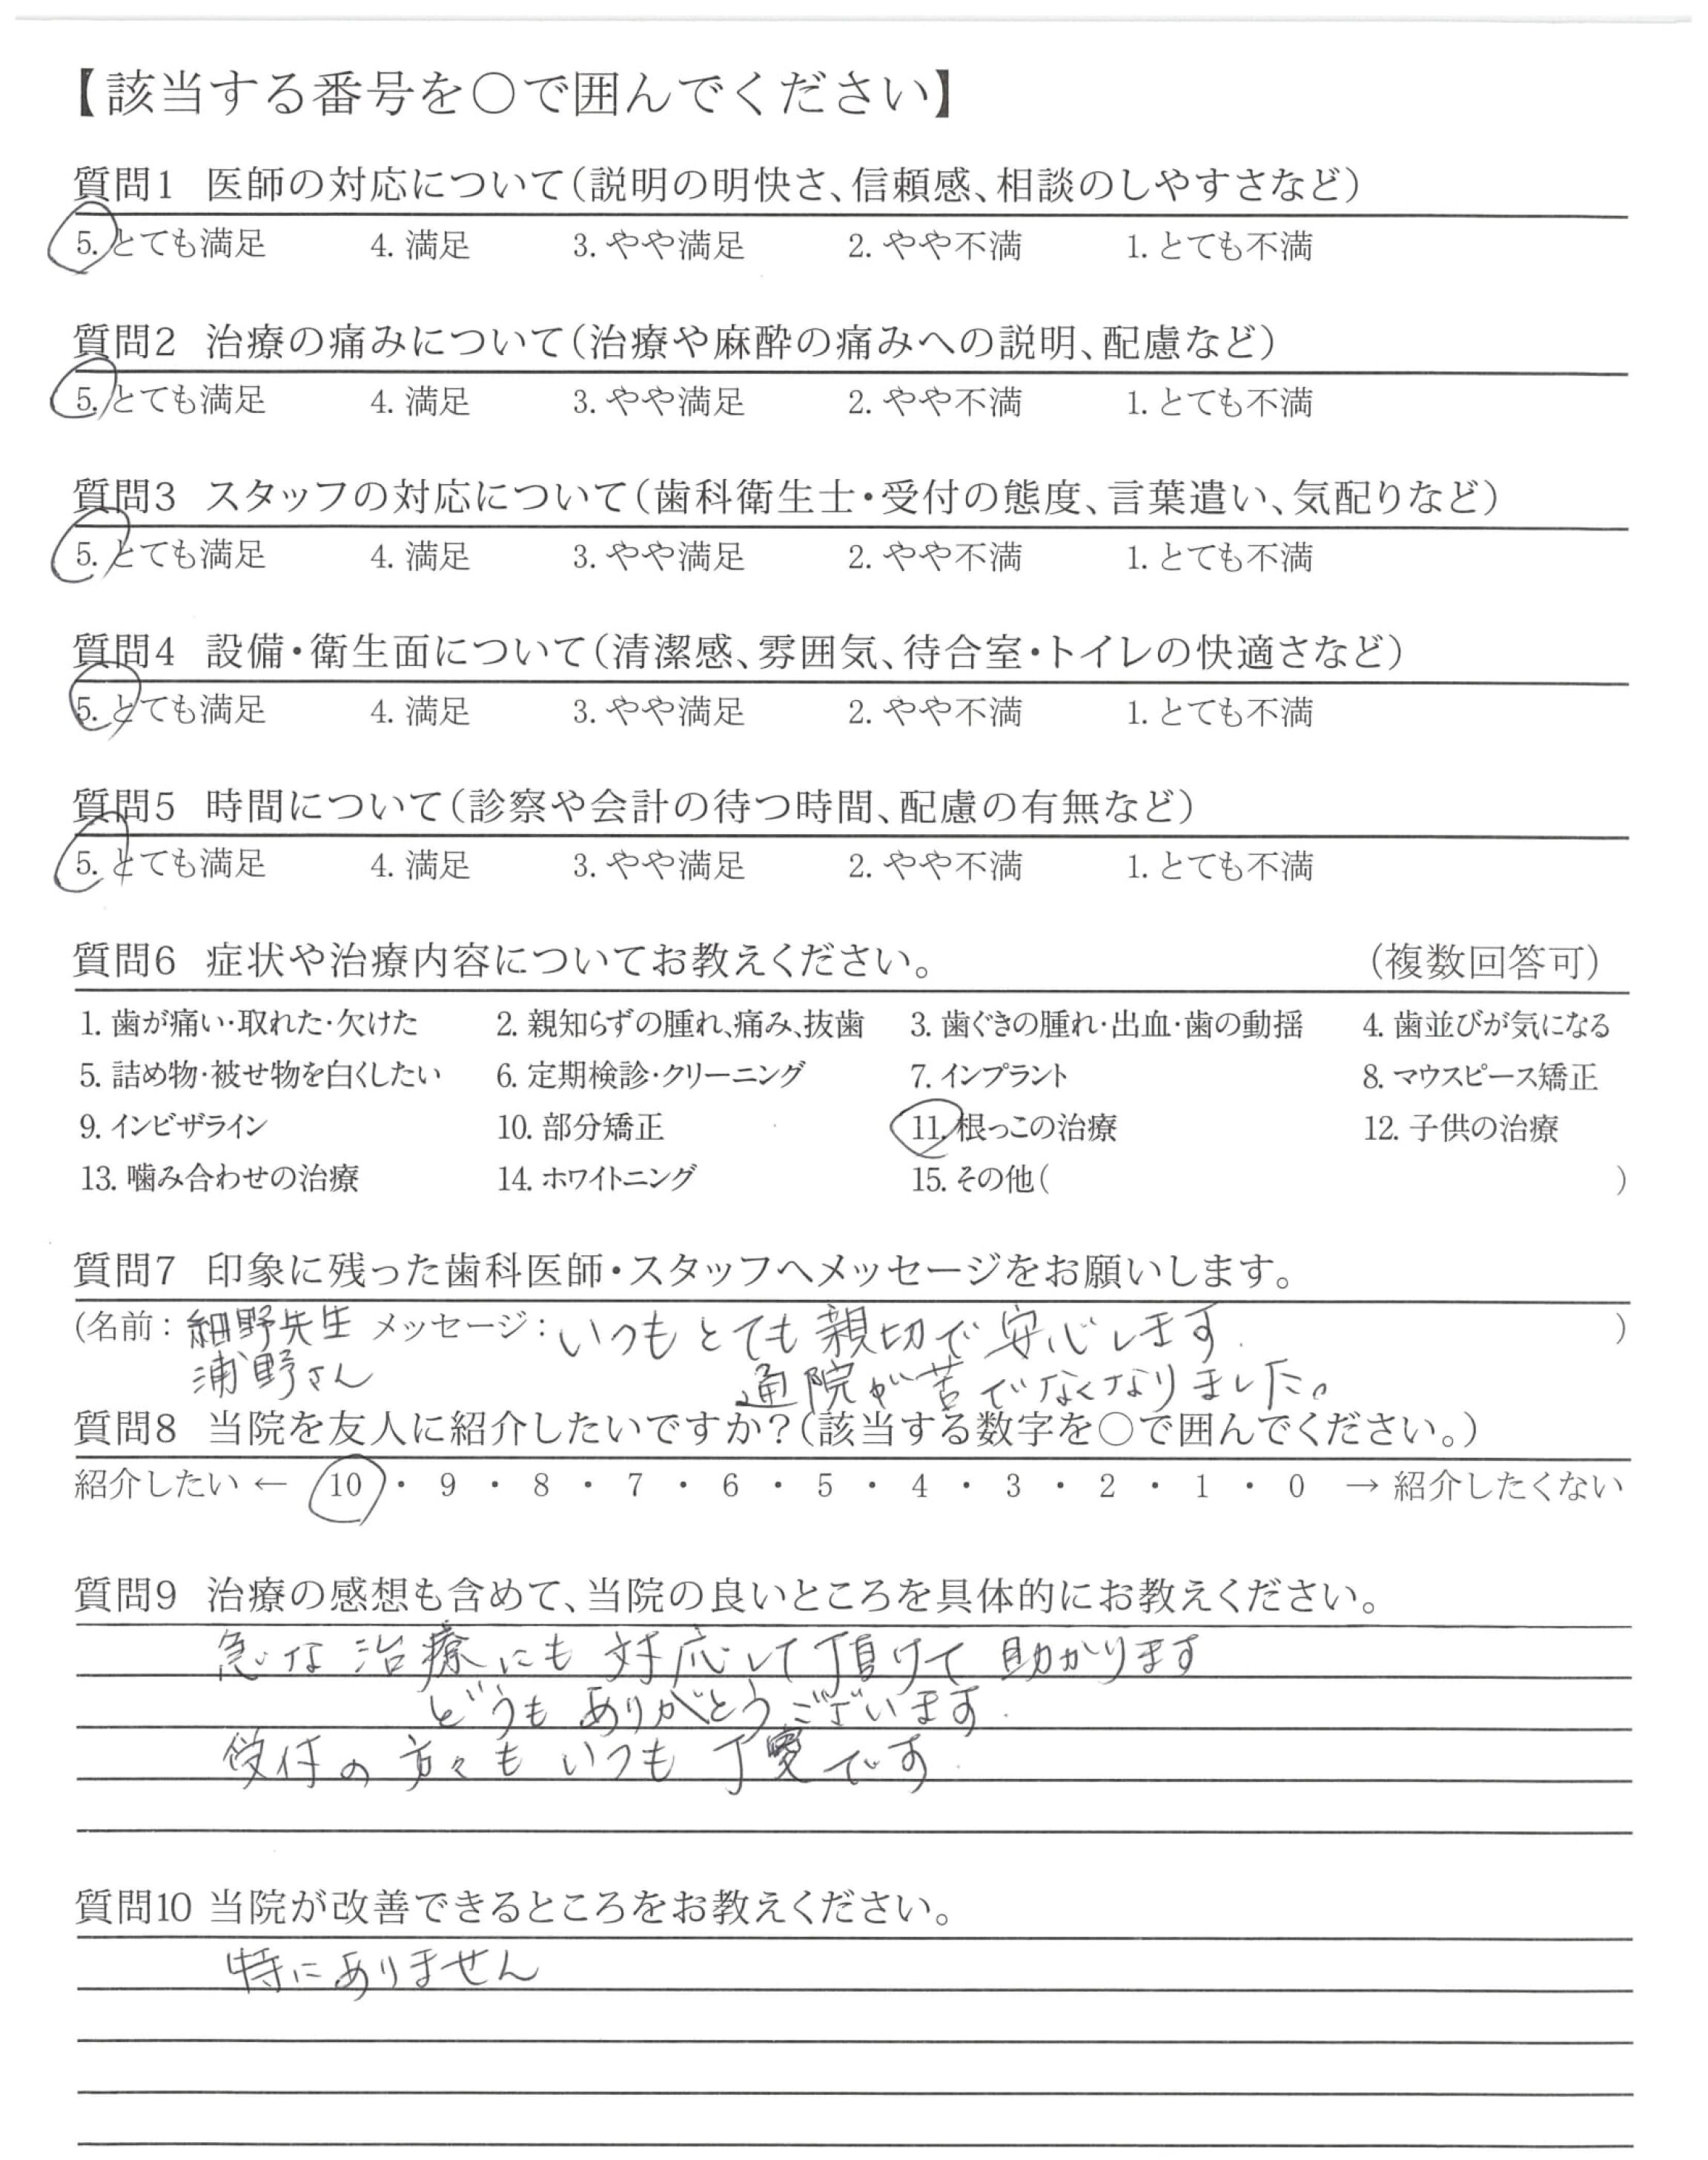 【該当する番号を○で囲んでください】
質問1 医師の対応について(説明の明快さ、信頼感、相談のしやすさなど)
5. とても満足 4. 満足 3. やや満足 2. やや不満 1. とても不満
質問2 治療の痛みについて(治療や麻酔の痛みへの説明、配慮など)
5. とても満足 4. 満足 3. やや満足 2. やや不満 1. とても不満
質問3 スタッフの対応について(歯科衛生士・受付の態度、言葉遣い、気配りなど)
5. とても満足 4. 満足 3. やや満足 2. やや不満 1. とても不満
質問4 設備・衛生面について(清潔感、雰囲気、待合室・トイレの快適さなど)
5. とても満足 4. 満足 3. やや満足 2. やや不満 1. とても不満
質問5 時間について(診察や会計の待つ時間、配慮の有無など)
5. とても満足 4. 満足 3. やや満足 2. やや不満 1. とても不満
質問6 症状や治療内容についてお教えください。 (複数回答可)
1. 歯が痛い・取れた・欠けた 2. 親知らずの腫れ、痛み、抜歯 3. 歯ぐきの腫れ・出血・歯の動揺 4. 歯並びが気になる
5. 詰め物・被せ物を白くしたい 6. 定期検診・クリーニング 7. インプラント 8. マウスピース矯正
9. インビザライン 10. 部分矯正 11. 根っこの治療 12. 子供の治療
13. 噛み合わせの治療 14. ホワイトニング 15. その他( )
質問7 印象に残った歯科医師・スタッフへメッセージをお願いします。
(名前:細野先生 メッセージ:いつもとても親切で安心します. )
浦野さん 通院が苦でなくなりました。
質問8 当院を友人に紹介したいですか?(該当する数字を○で囲んでください。)
紹介したい ← 10 ・ 9 ・ 8 ・ 7 ・ 6 ・ 5 ・ 4 ・ 3 ・ 2 ・ 1 ・ 0 → 紹介したくない
質問9 治療の感想も含めて、当院の良いところを具体的にお教えください。
急な治療にも対応して頂けて助かります
どうもありがとうございます.
受付の方々もいつも丁寧です.
質問10 当院が改善できるところをお教えください。
特にありません